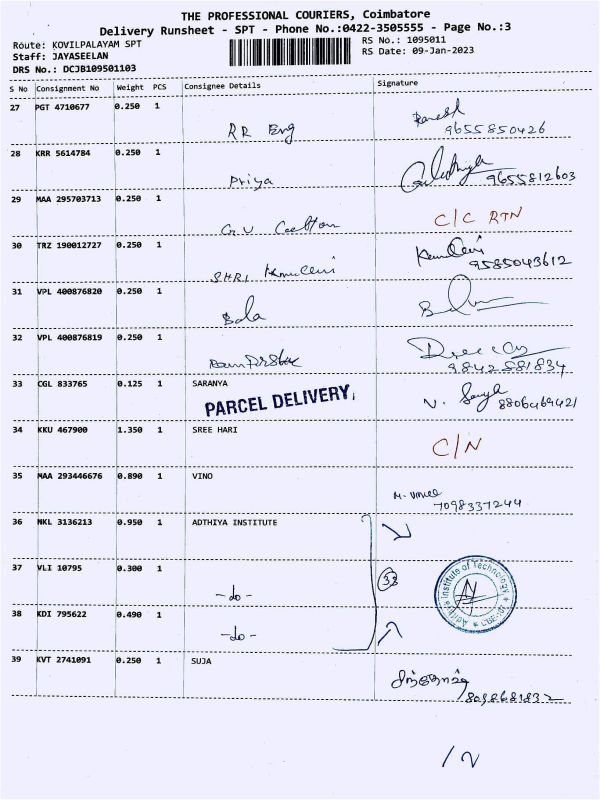 THE PROFESSIONAL COURIERS, Coimbatore
Delivery Runsheet - SPT - Phone No.:0422-3505555 - Page No.:3
Route: KOVILPALAYAM SPT
Staff: JAYASEELAN
DRS No.: DCJB109501103
RS No.: 1095011
RS Date: 09-Jan-2023
S No Consignment No Weight PCS Consignee Details Signature
27 PGT 4710677 0.250 1
RR Eng
9655850426
28 KRR 5614784 0.250 1
Priya
9655812603
29 MAA 295703713 0.250 1
G.V C/C RTN
30 TRZ 190012727 0.250 1
SHRI
9585043612
31 VPL 400876820 0.250 1
Bala
32 VPL 400876819 0.250 1
9842881834
33 CGL 833765 0.125 1 SARANYA
PARCEL DELIVERY,
8806469421
34 KKU 467900 1.350 1 SREE HARI
C/N
35 MAA 293446676 0.890 1 VINO
7098337244
36 MKL 3136213 0.950 1 ADTHIYA INSTITUTE
37 VLI 10795 0.300 1
-do-
33
Institute of Technology
38 KDI 795622 0.490 1
-do-
39 KVT 2741091 0.250 1 SUJA
8098681832